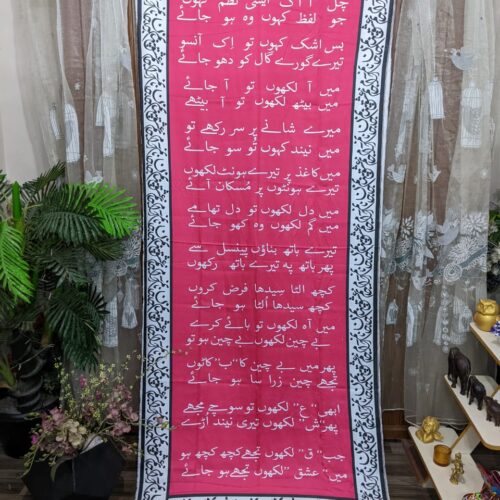 چل آ اک ایسی نظم کہوں
جو لفظ کہوں وہ ہو جائے
بس اشک کہوں تو اِک آنسو
تیرے گورے گال کو دھو جائے
میں آ لکھوں تو آ جائے
میں بیٹھ لکھوں تو آ بیٹھے
میرے شانے پر سر رکھے تو
میں نیند کہوں تُو سو جائے
میں کاغذ پر تیرے ہونٹ لکھوں
تیرے ہونٹوں پر مُسکان آئے
میں دل لکھوں تو دل تھامے
میں گم لکھوں وہ کھو جائے
تیرے ہاتھ بناؤں پینسل سے
پھر ہاتھ پہ تیرے ہاتھ رکھوں
کچھ الٹا سیدھا فرض کروں
کچھ سیدھا اُلٹا ہو جائے
میں آہ لکھوں تو ہائے کرے
بے چین لکھوں بے چین ہو تو
پھر میں بے چین کا "ب" کاٹوں
تجھے چین زرا سا ہو جائے
ابھی "ع" لکھوں تو سوچے مجھے
پھر "ش" لکھوں تیری نیند اُڑے
جب "ق" لکھوں تجھے کچھ کچھ ہو
میں "عشق" لکھوں تجھے ہو جائے